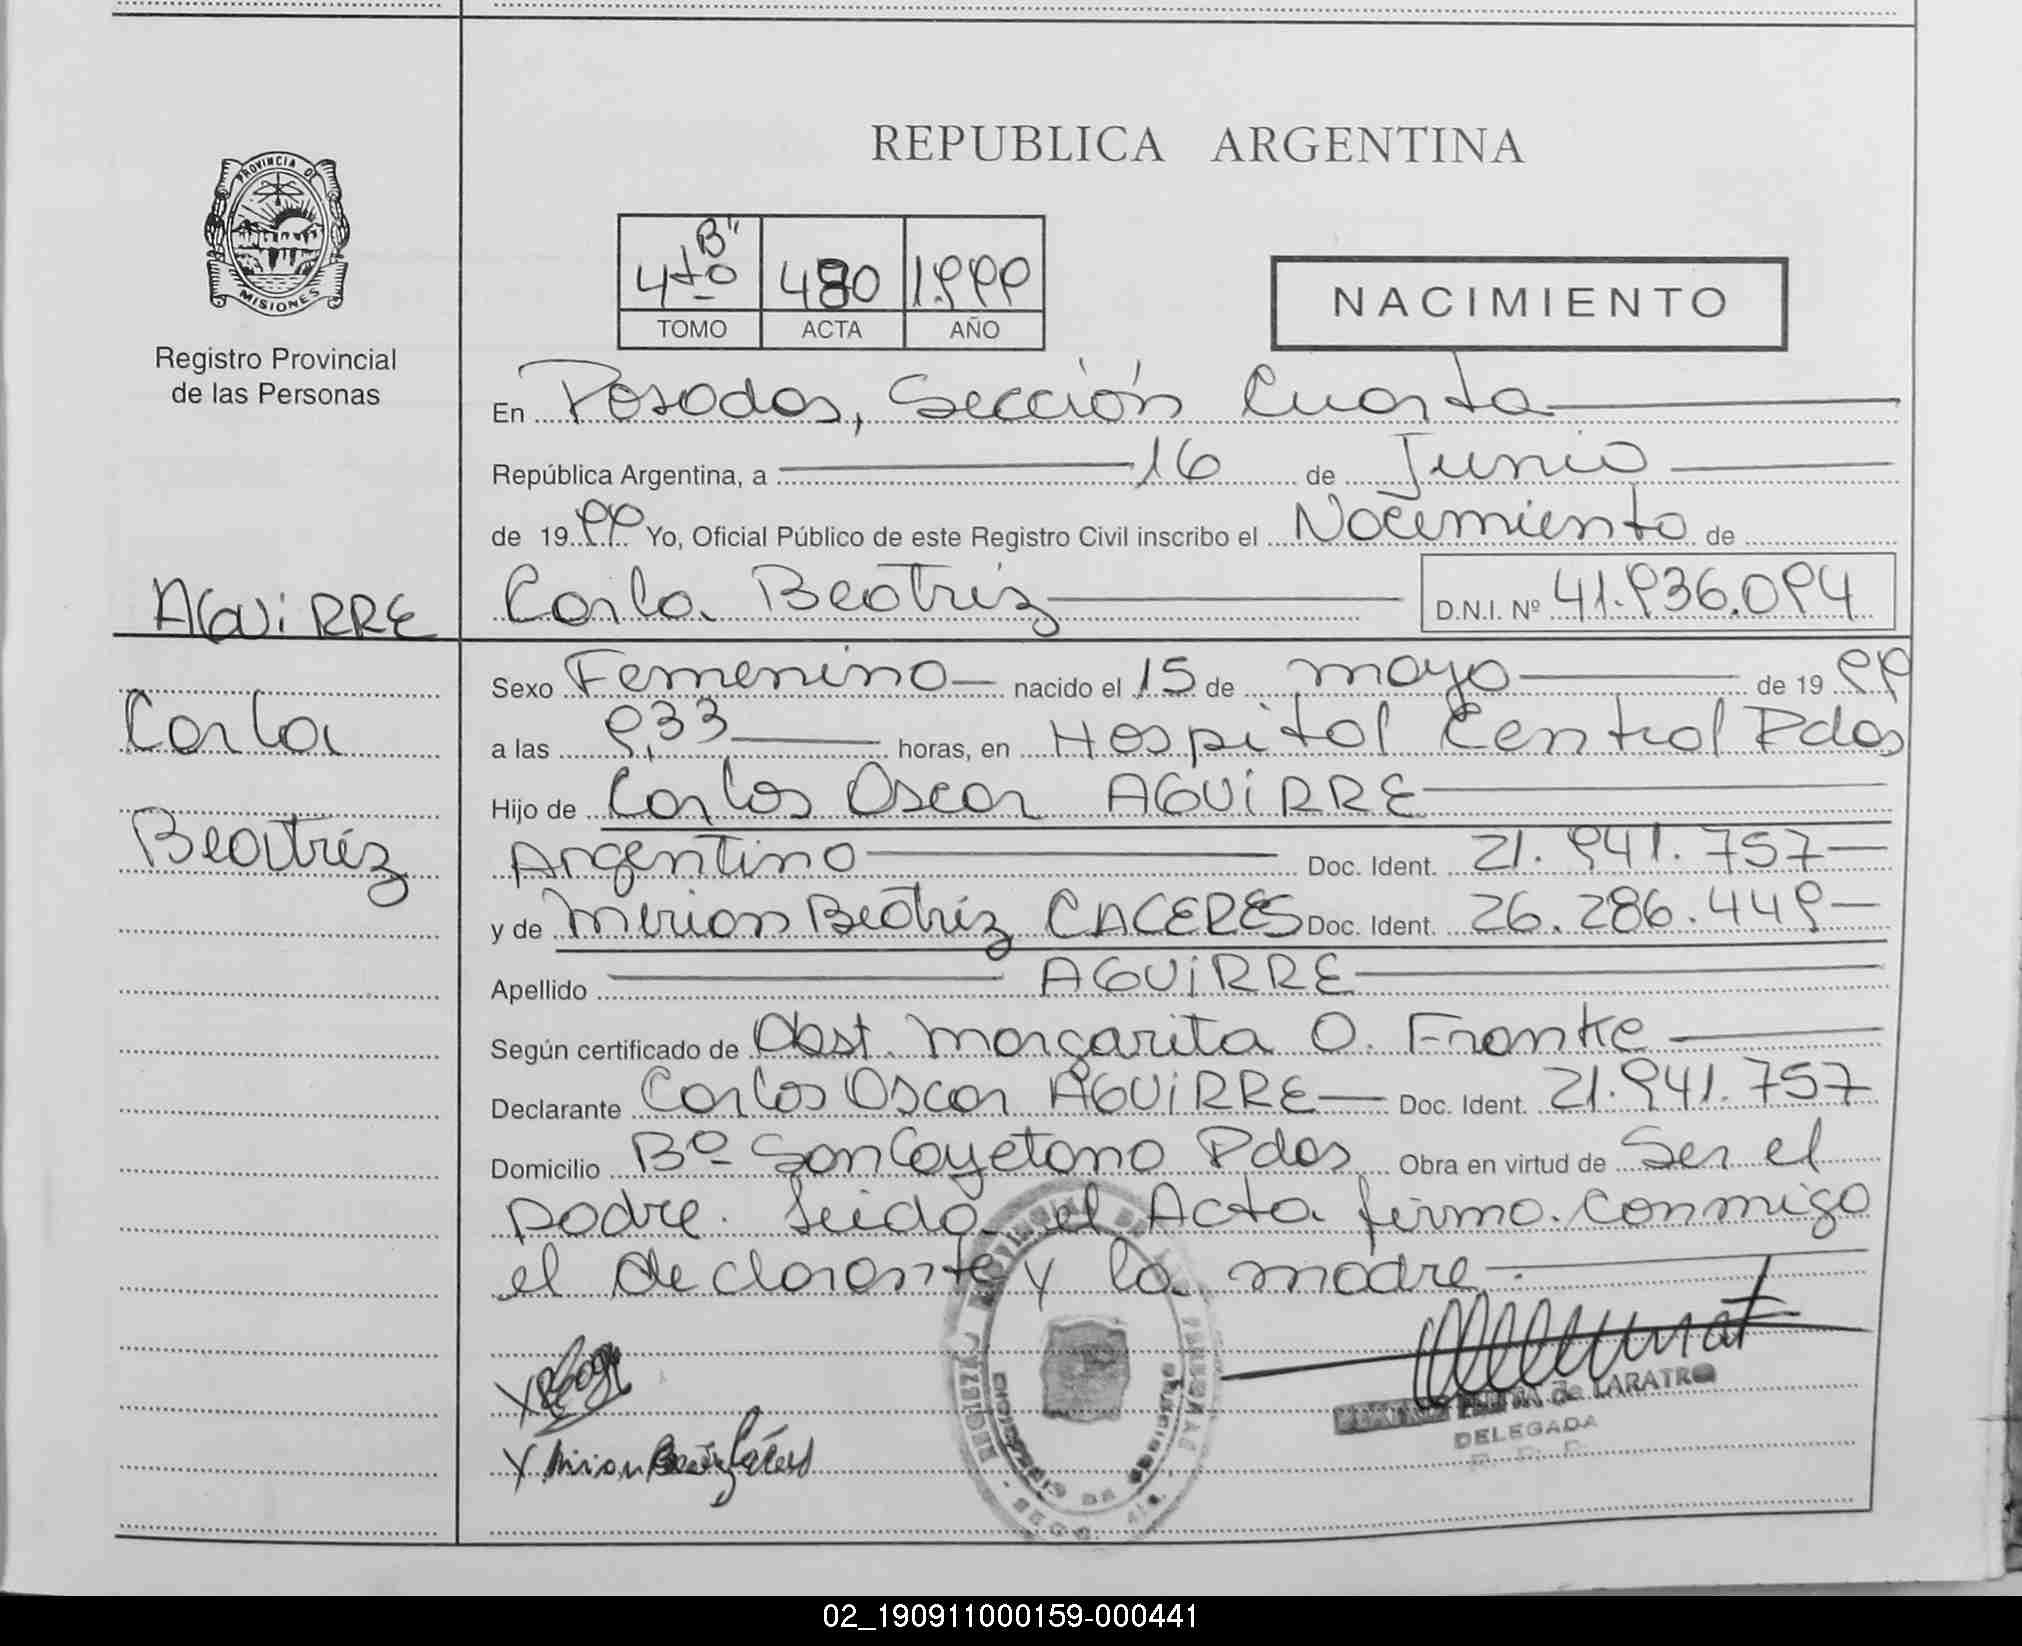 REPUBLICA ARGENTINA
PROVINCIA DE
MISIONES
Registro Provincial
de las Personas
4to "B" 480 1.999
TOMO ACTA AÑO
NACIMIENTO
En Posadas, Sección Cuarta
República Argentina, a 16 de Junio
de 1999 Yo, Oficial Público de este Registro Civil inscribo el Nacimiento de
AGUiRRE
Carla Beatriz D.N.I. Nº 41.936.094
Sexo Femenino nacido el 15 de mayo de 1999
Carla
a las 9,33 horas, en Hospital Central Pdas
Hijo de Carlos Oscar AGUiRRE
Beatríz
Argentino Doc. Ident. 21.941.757
y de Mirian Beatríz CACERES Doc. Ident. 26.286.449
Apellido AGUiRRE
Según certificado de Obst. Margarita O. Franke
Declarante Carlos Oscar AGUiRRE Doc. Ident. 21.941.757
Domicilio Bº San Cayetano Pdas Obra en virtud de Ser el
padre. Leida el Acta firma conmigo
el declarante y la madre.
X
X Mirian Beatriz Cáceres
de LARATRO
DELEGADA
02_190911000159-000441